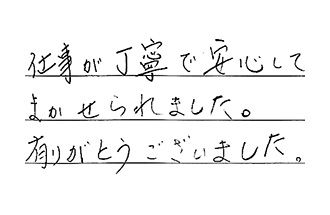 仕事が丁寧で安心して
まかせられました。
有りがとうございました。